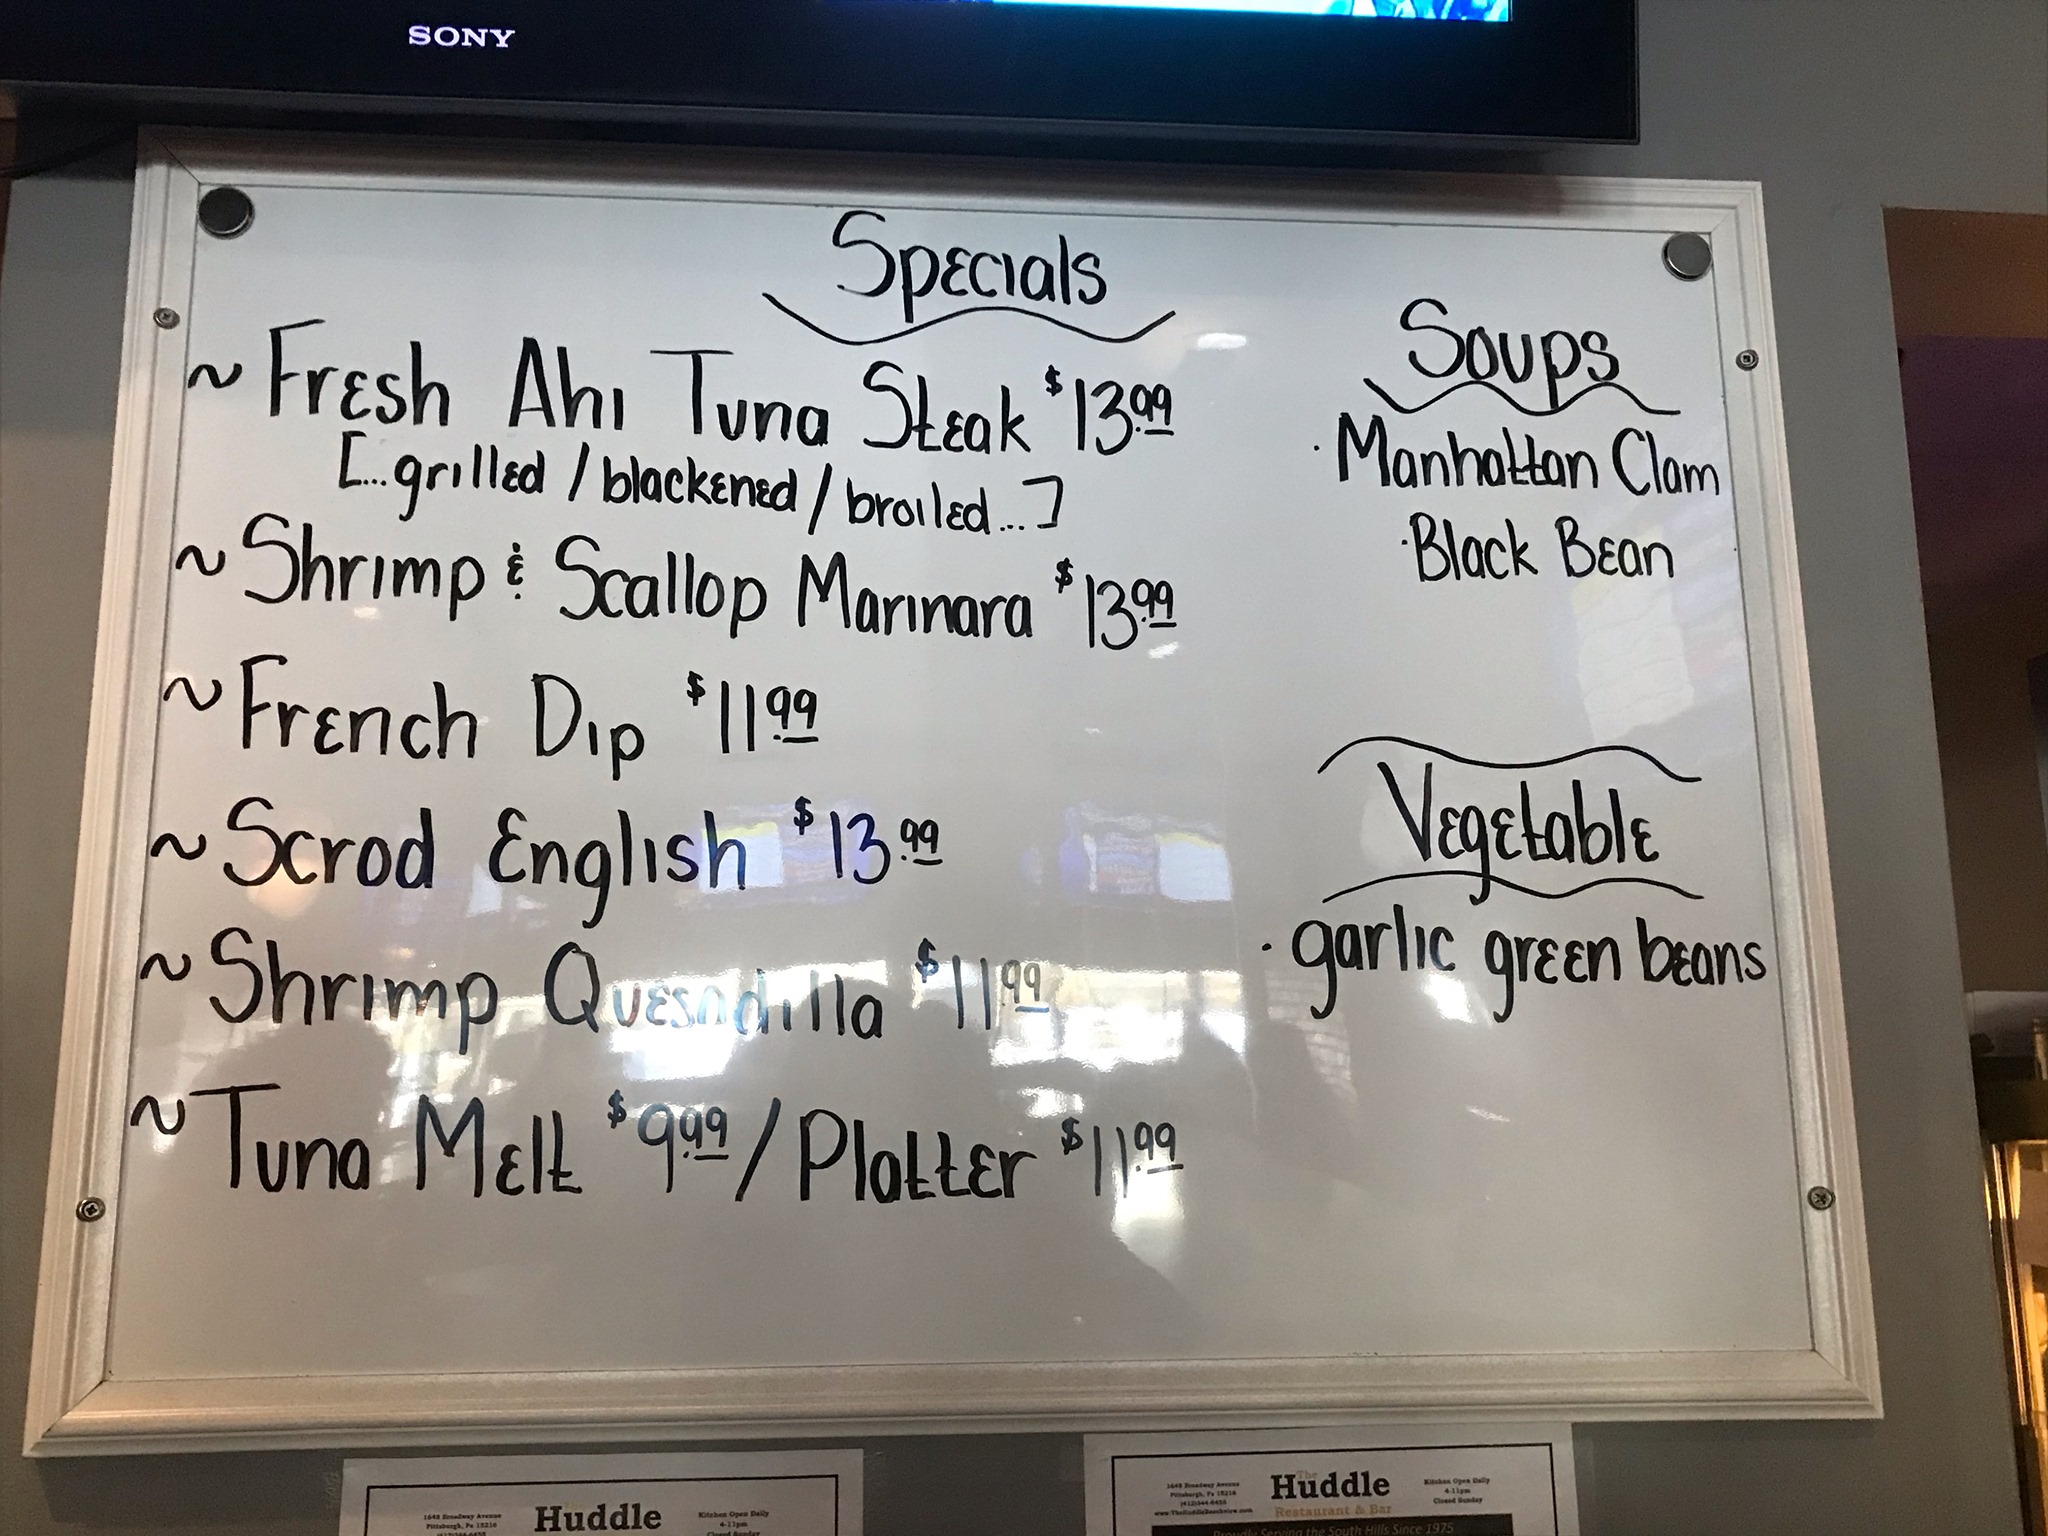 SONY
Specials
~ Fresh Ahi Tuna Steak $13.99
[...grilled / blackened / broiled...]
~ Shrimp & Scallop Marinara $13.99
~ French Dip $11.99
~ Scrod English $13.99
~ Shrimp Quesadilla $11.99
~ Tuna Melt $9.99 / Platter $11.99
Soups
· Manhattan Clam
· Black Bean
Vegetable
· garlic green beans
1648 Broadway Avenue
Pittsburgh, Pa 15216
The
Huddle
Kitchen Open Daily
4-11pm
Closed Sunday
1648 Broadway Avenue
Pittsburgh, Pa 15216
(412)344-6455
The
Huddle
Restaurant & Bar
Proudly Serving the South Hills Since 1975
Kitchen Open Daily
4-11pm
Closed Sunday